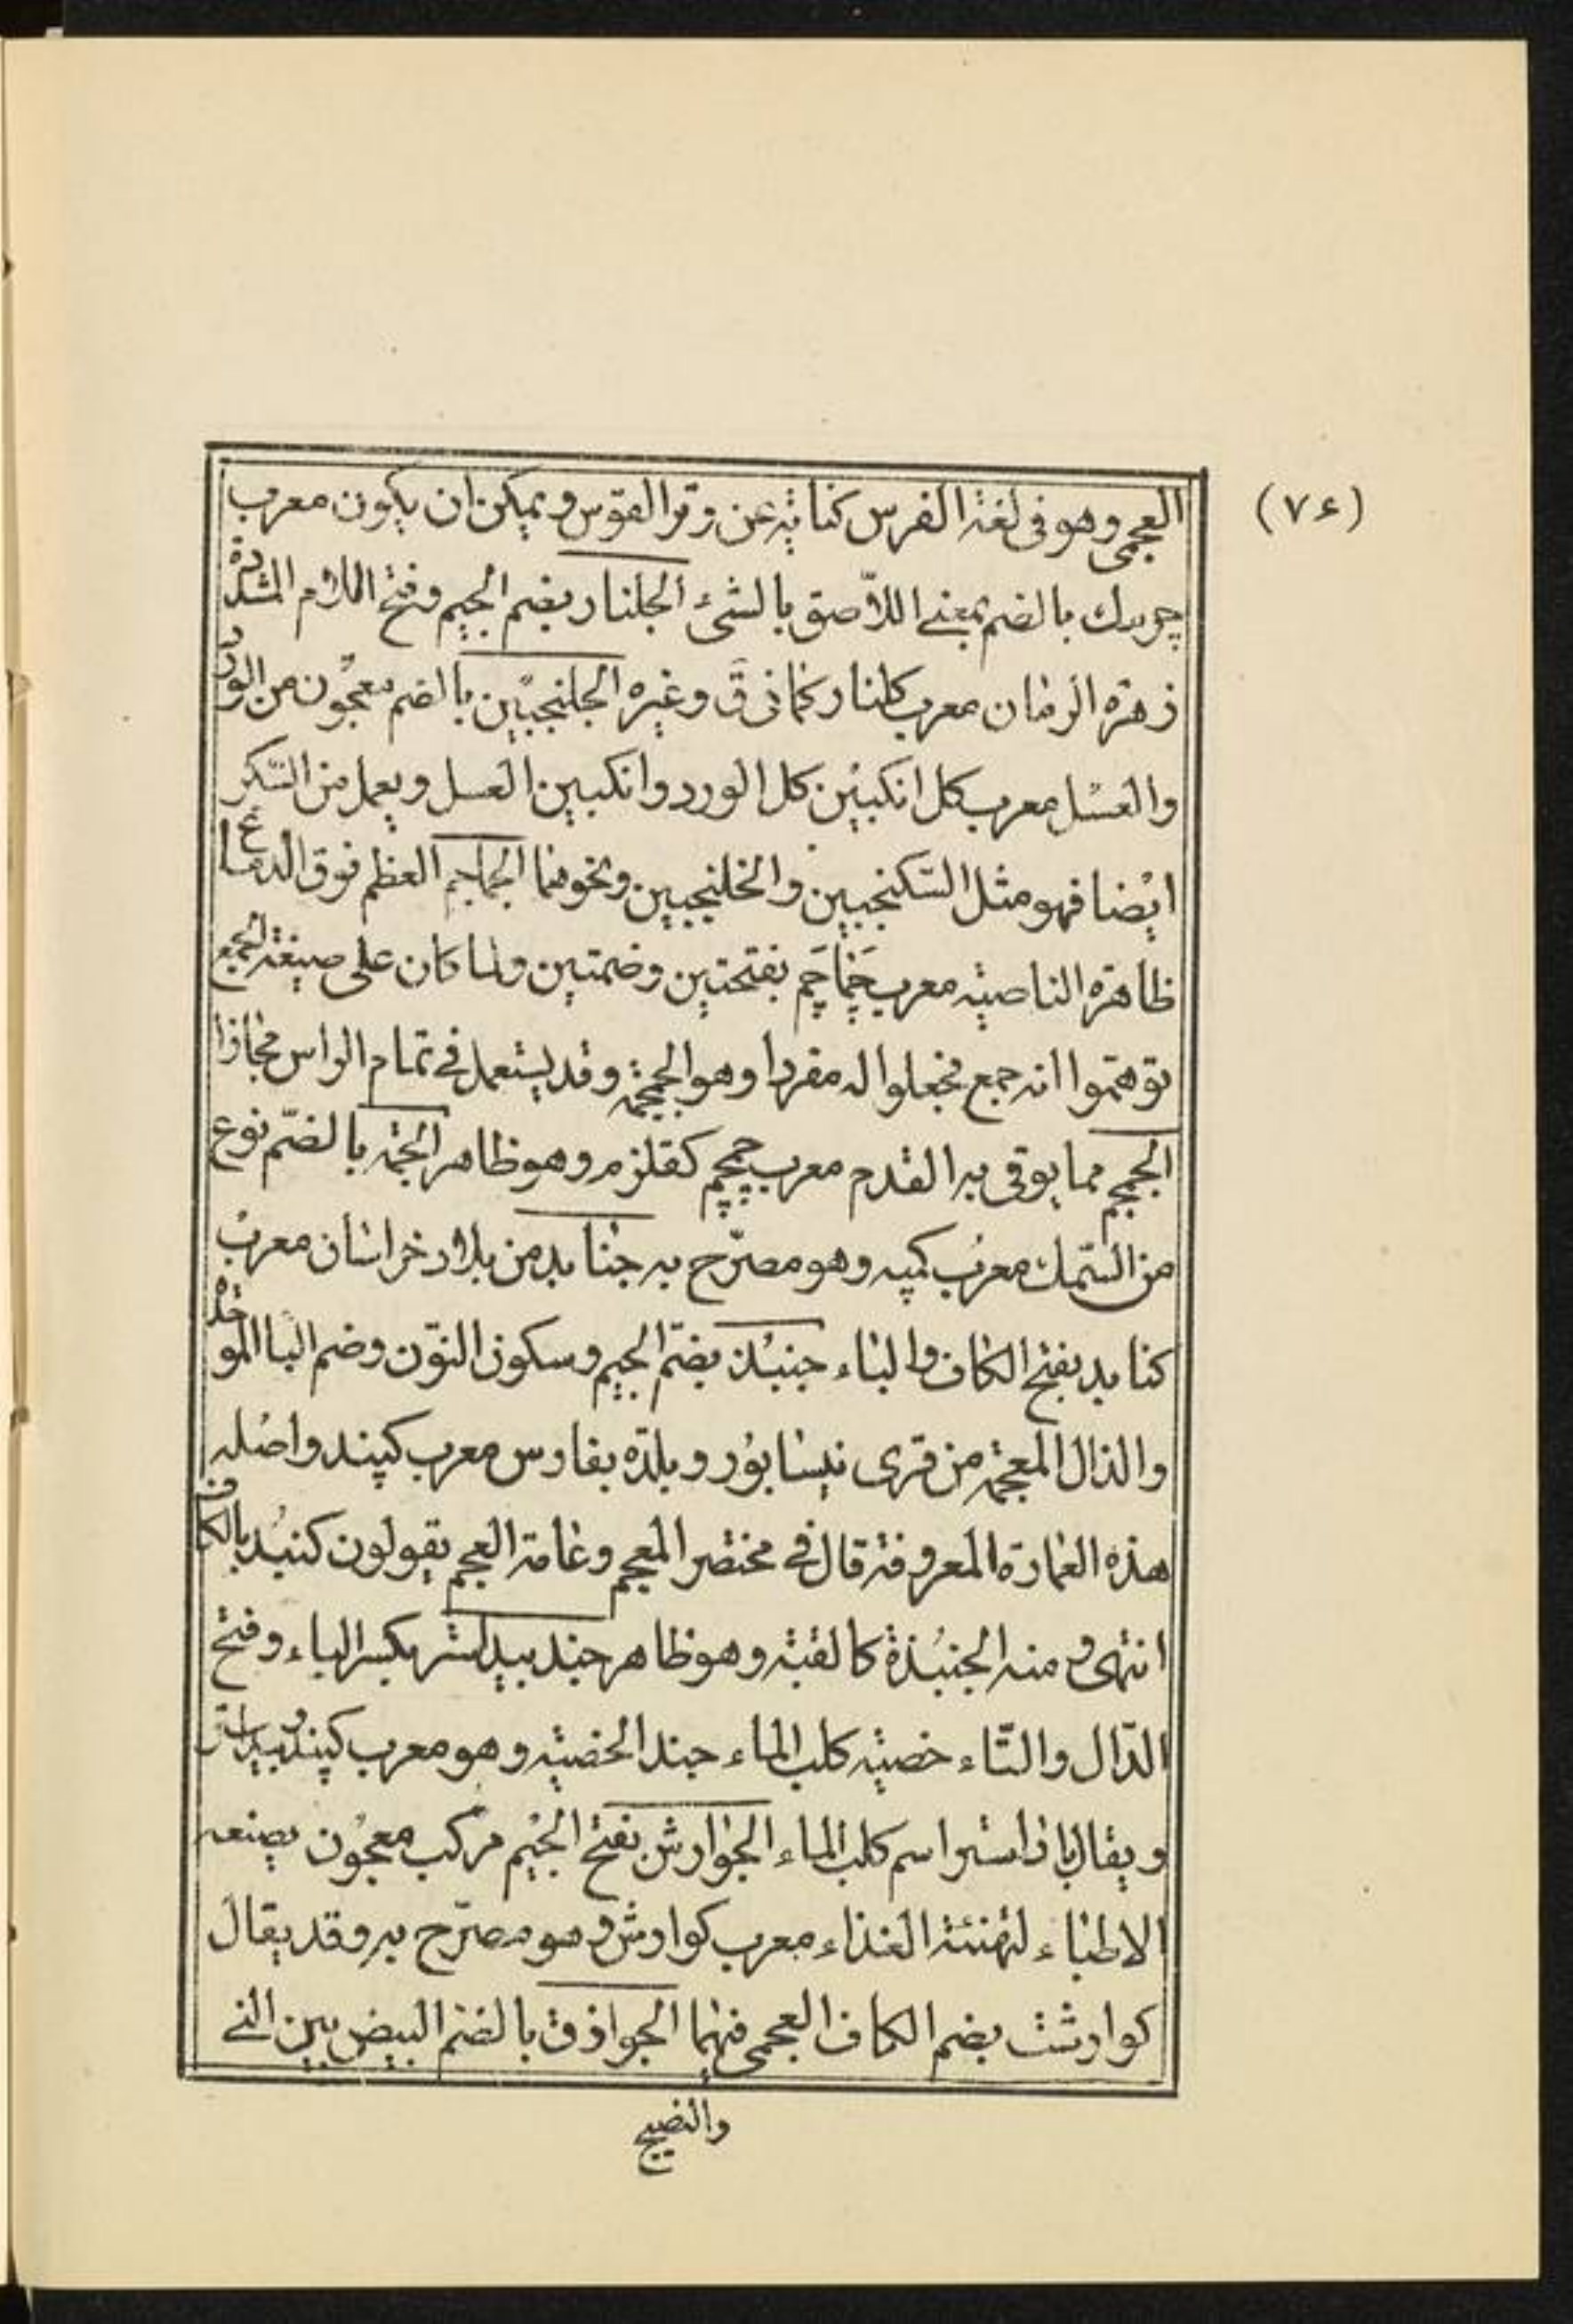 (٧٤)
العجمى وهو فى لغة الفرس كناية عن وتر القوس ويمكن ان يكون معرب
بالضم بمعنى اللاّصق بالشئ الجلنار بضم الجيم وفتح اللام المشددة
زهرة الرمان معرب كلنار كما فى ق وغيره الجلنجبين بالضم معجون من الورد
والعسل معرب كل انكبين كل الورد وانكبين العسل ويعمل من السّكر
ايضا فهو مثل السّكنجبين والخلنجبين ونحوهما الجماجم العظم فوق الدماغ
ظاهرة الناصية معرب چَماچَم بفتحتين وضمتين ولما كان على صيغة الجمع
توهّموا انه جمع فجعلوا له مفردا وهو الجمجمة وقد يستعمل فى تمام الراس مجازا
الجمجم مما يوقى به القدم معرب چمچم كقلزم وهو ظاهر الجمة بالضّم نوع
من السّمك معرب كمپه وهو مصرّح به جنابد من بلاد خراسان معرب
كنابد بفتح الكاف والباء جنبذ بضمّ الجيم وسكون النّون وضم البا الموحدة
والذال المعجمة من قرى نيسابور وبلدة بفارس معرب كپند واصله
هذه العمارة المعروفة قال فى مختصر المعجم وعامة العجم يقولون كنبد بالكاف
انتهى ومنه الجنبُذة كالقبة وهو ظاهر جند بيدستر بكسر الباء وفتح
الدّال والتّاء خصية كلب الماء جند الخصية وهو معرب كپند وبيداستر
ويقال باذاستر اسم كلب الماء الجوارش بفتح الجيم مركب معجون يصنعه
الاطباء لتهنئة الغذاء معرب كوارش وهو مصرّح به وقد يقال
كوارشت بضم الكاف العجمى فيهما الجواذق بالضم البيض بين النى
والنضيج